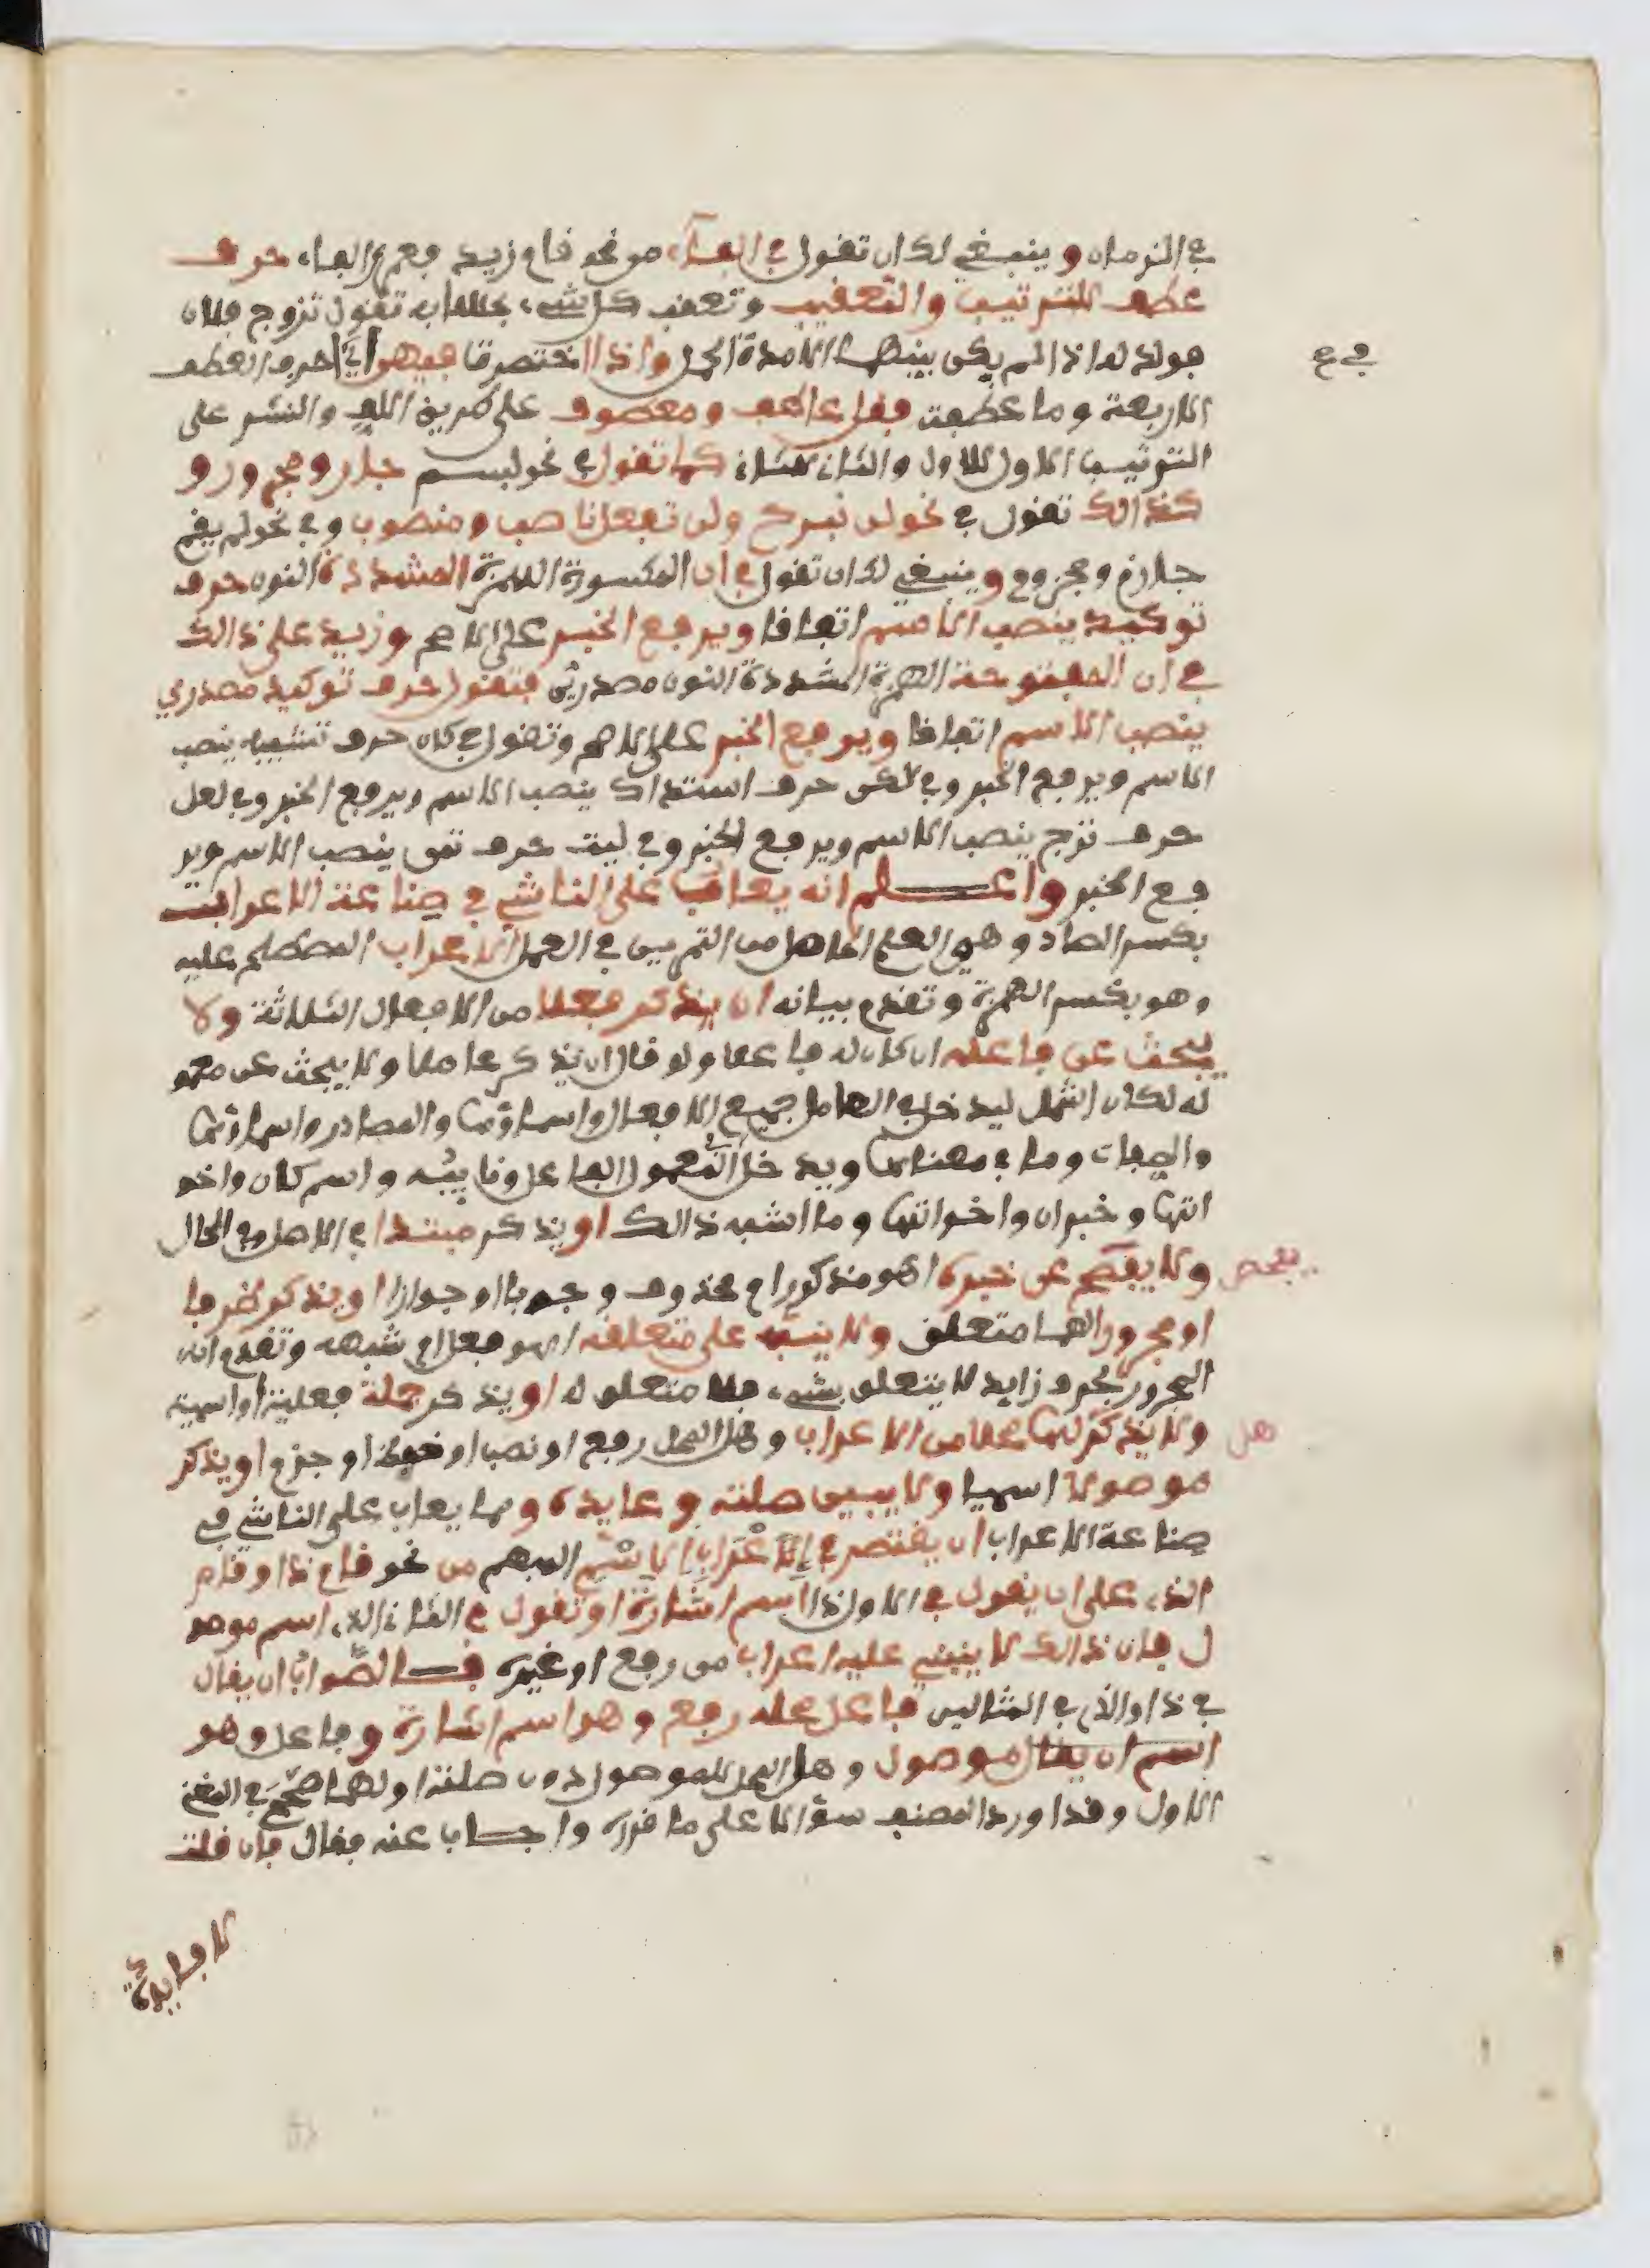 في الزمان وينبغي لك ان تقول في الفاء من نحو قام زيد فعمرو الفاء حرف
عطف للترتيب والتعقيب وتعقب كل شيء بحسابه تقول تزوج فلان
فولد له اذا لم يكن بينهما الا مدة الحمل واذا اختصرت فيهن اي احرف العطف
في ع
الاربعة وما عطفت فقل عاطف ومعطوف على طريق اللف والنشر على
الترتيب الاول للاول والثاني للثاني كما تقول في نحو بسم جار ومجرور و
كذالك تقول في نحو لن نبرح ولن تفعل ناصب ومنصوب وفي نحو لم يقم
جازم ومجزوم وينبغي لك ان تقول في ان المكسورة الهمزة المشددة النون حرف
توكيد ينصب الاسم اتفاقا ويرفع الخبر على الاصح وزيد على ذالك
في ان المفتوحة الهمزة المشددة النون مصدري فتقول حرف توكيد مصدري
ينصب الاسم اتفاقا ويرفع الخبر على الاصح وتقول في كان حرف تشبيه ينصب
الاسم ويرفع الخبر وفي لكن حرف استدراك ينصب الاسم ويرفع الخبر وفي لعل
حرف ترج ينصب الاسم ويرفع الخبر وفي ليت حرف تمن ينصب الاسم وير
فع الخبر واعلم انه يعاب على الناشي في صناعة الاعراب
بكسر الصاد وهي العلم الحاصل من التمرين في العمل الاعراب المصطلح عليه
وهو بكسر الهمزة وتقدم بيانه ان يذكر فعلا من الافعال الثلاثة ولا
يبحث عن فاعله ان كان له فاعل ولو قال ان يذكر عاملا ولا يبحث عن معمو
له لكان اشمل ليدخل في العامل جميع الافعال واسماؤها والمصادر واسماؤها
والصفات وما في معناها ويدخل في المعمول الفاعل ونايبه واسم كان واخو
اتها وخبر ان واخواتها وما اشبه ذالك او يذكر مبتدا في الاصل وفي الحال
ولا يفحص عن خبره اهو مذكور ام محذوف وجوبا او جوازا او يذكر ظرفا
يفحص
او مجرورا لهما متعلق ولا ينبه على متعلقه اهو فعل ام شبهه وتقدم ان
المجرور بحرف زايد لا يتعلق بشيء فلا متعلق له او يذكر جملة فعلية او اسمية
ولا يذكر لها محلا من الاعراب وهل المحل رفع او نصب او خفض او جزم او يذكر
هل
موصولا اسميا ولا يبين صلته وعايده ومما يعاب على الناشي في
صناعة الاعراب ان يقتصر في اعراب الاسم المبهم من نحو قام ذا او قام
الذي على ان يقول في الاول ذا اسم اشارة او تقول في الثاني الذي اسم موصو
ل فان ذالك لا ينبني عليه اعراب من رفع او غيره فالصواب ان يقال
في ذا والذي في المثالين فاعل محله رفع وهو اسم اشارة وفاعل وهو
اسم ان يقال موصول وهل المحل للموصول دون صلته او لهما صحح في المغني
الاول وقد اورد المصنف سؤالا على ما قرره واجاب عنه فقال فان قلت
لا فايدة